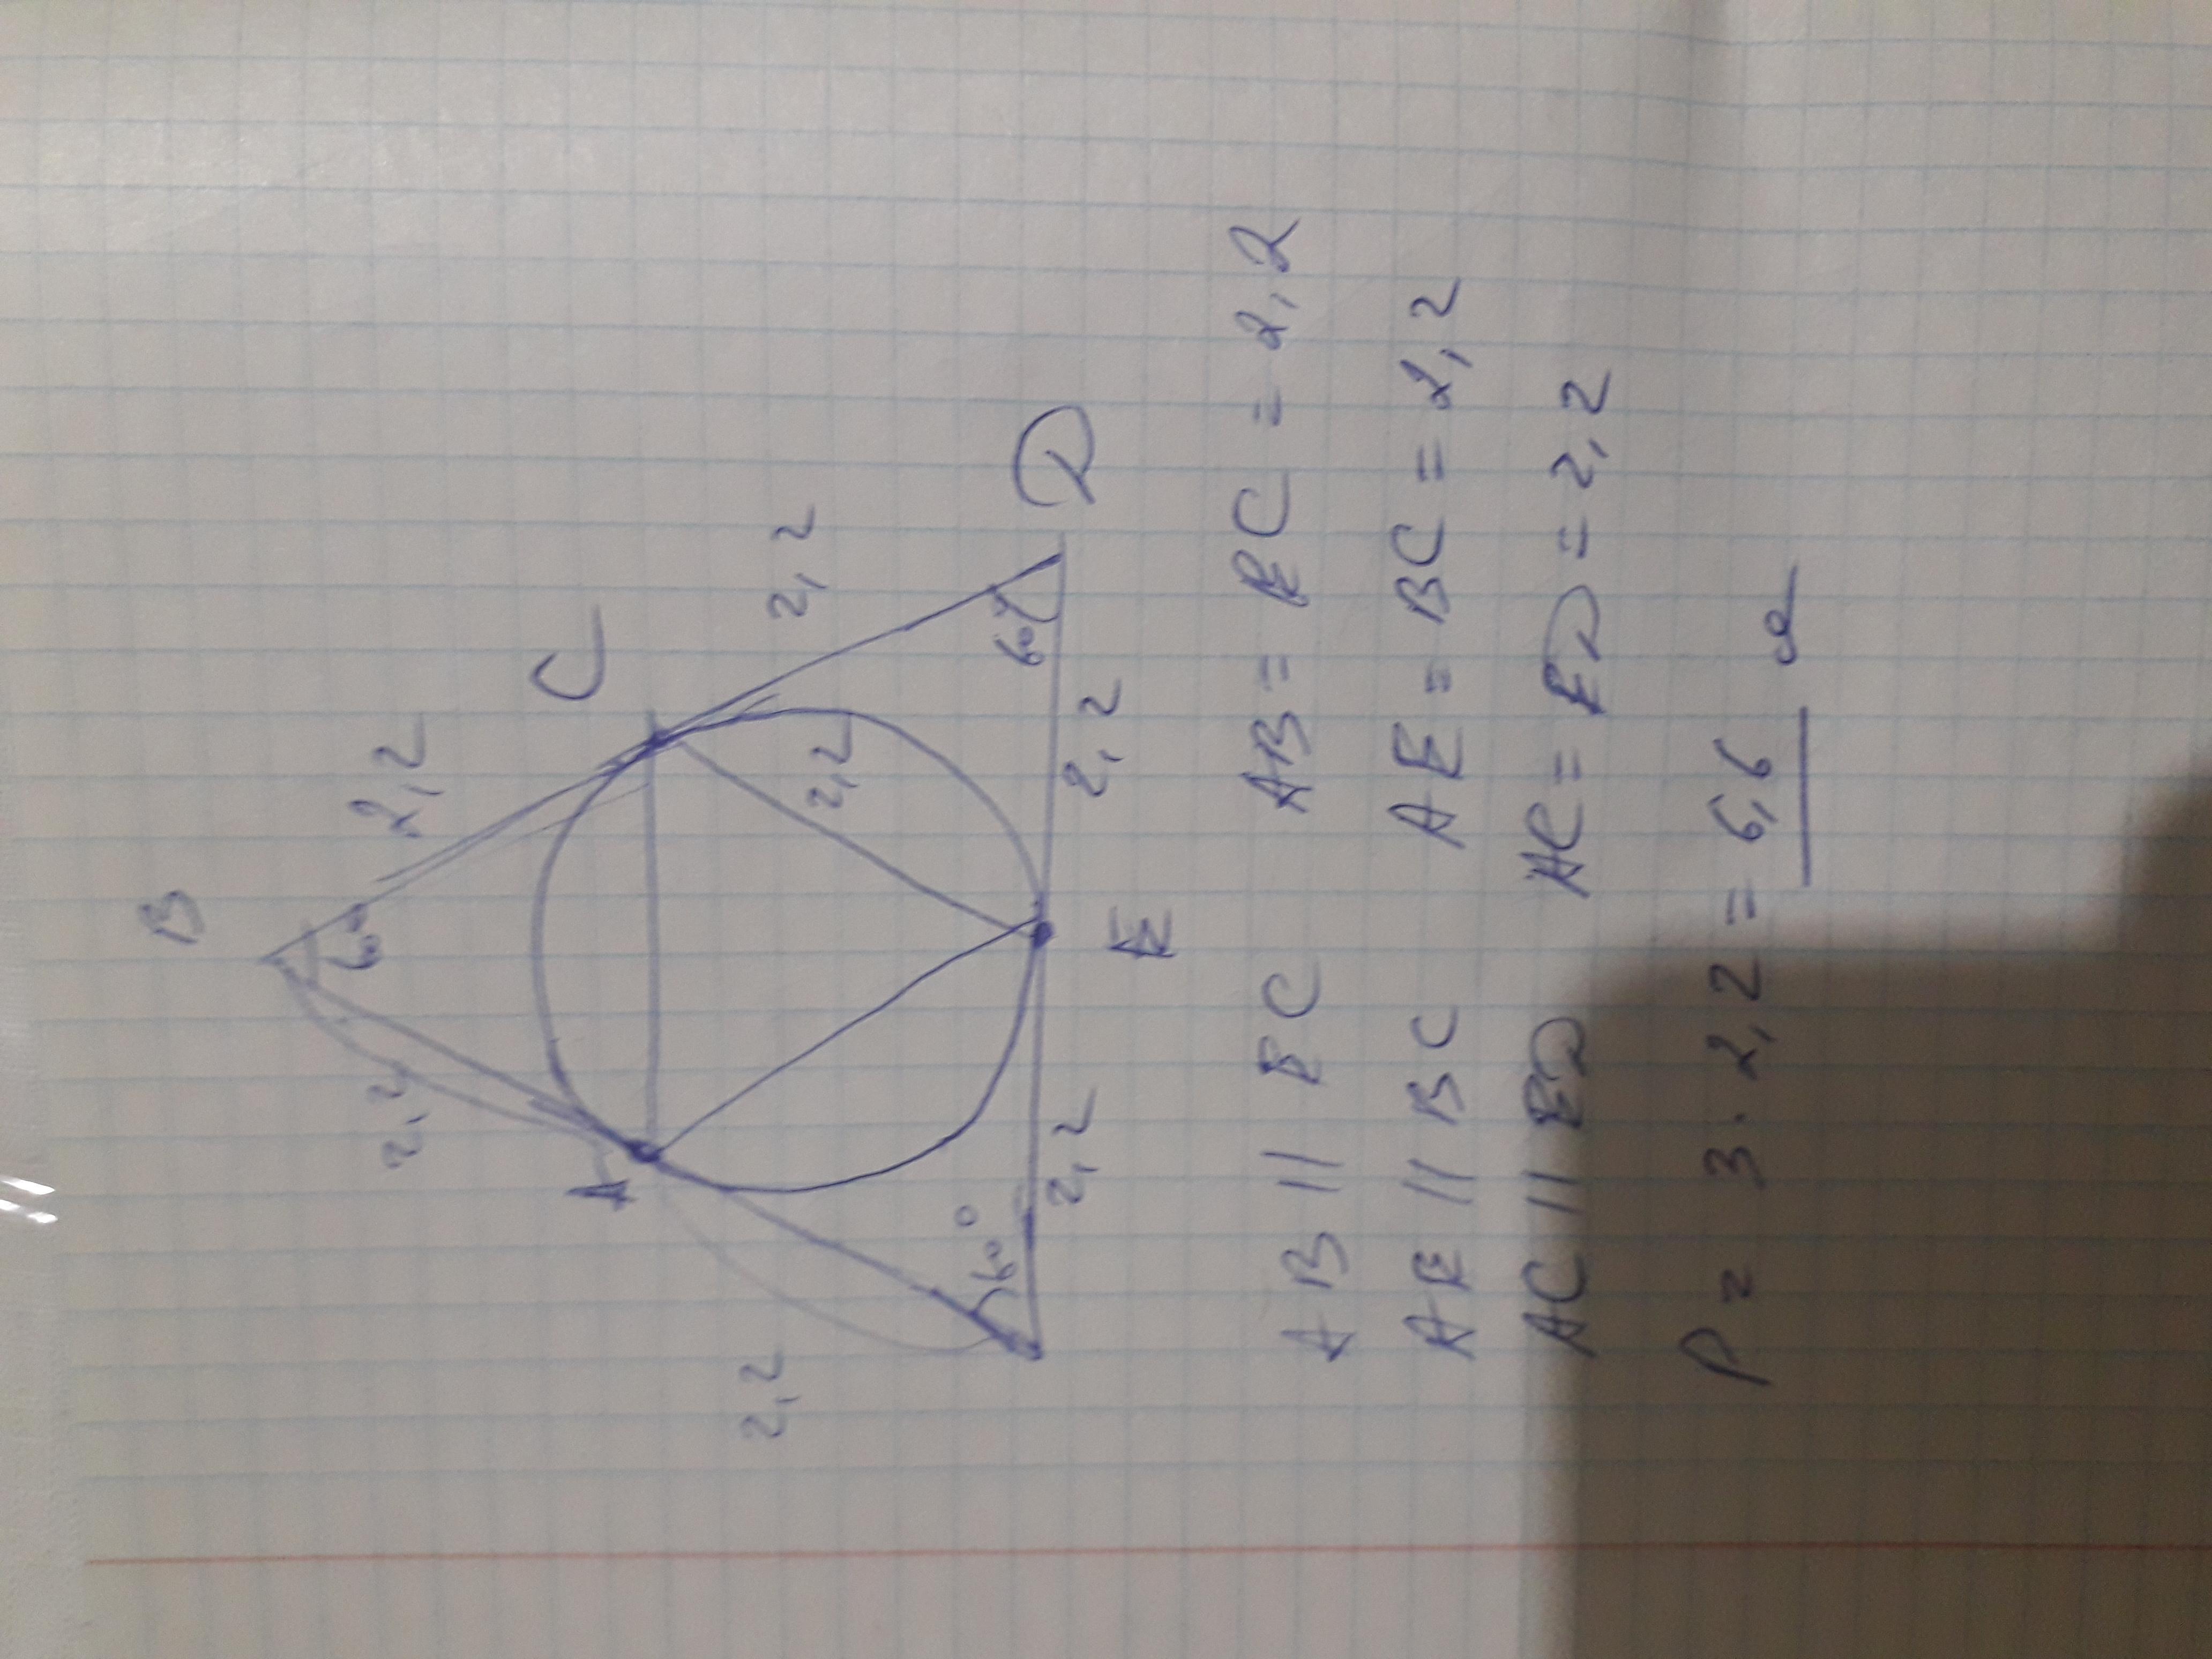 B
2,2
60°
2,2
C
A
2,2
2,2
2,2
60°
60°
D
2,2
2,2
E
AB || EC AB = EC = 2,2
AE || BC AE = BC = 2,2
AC || ED AC = ED = 2,2
P = 3 · 2,2 = 6,6